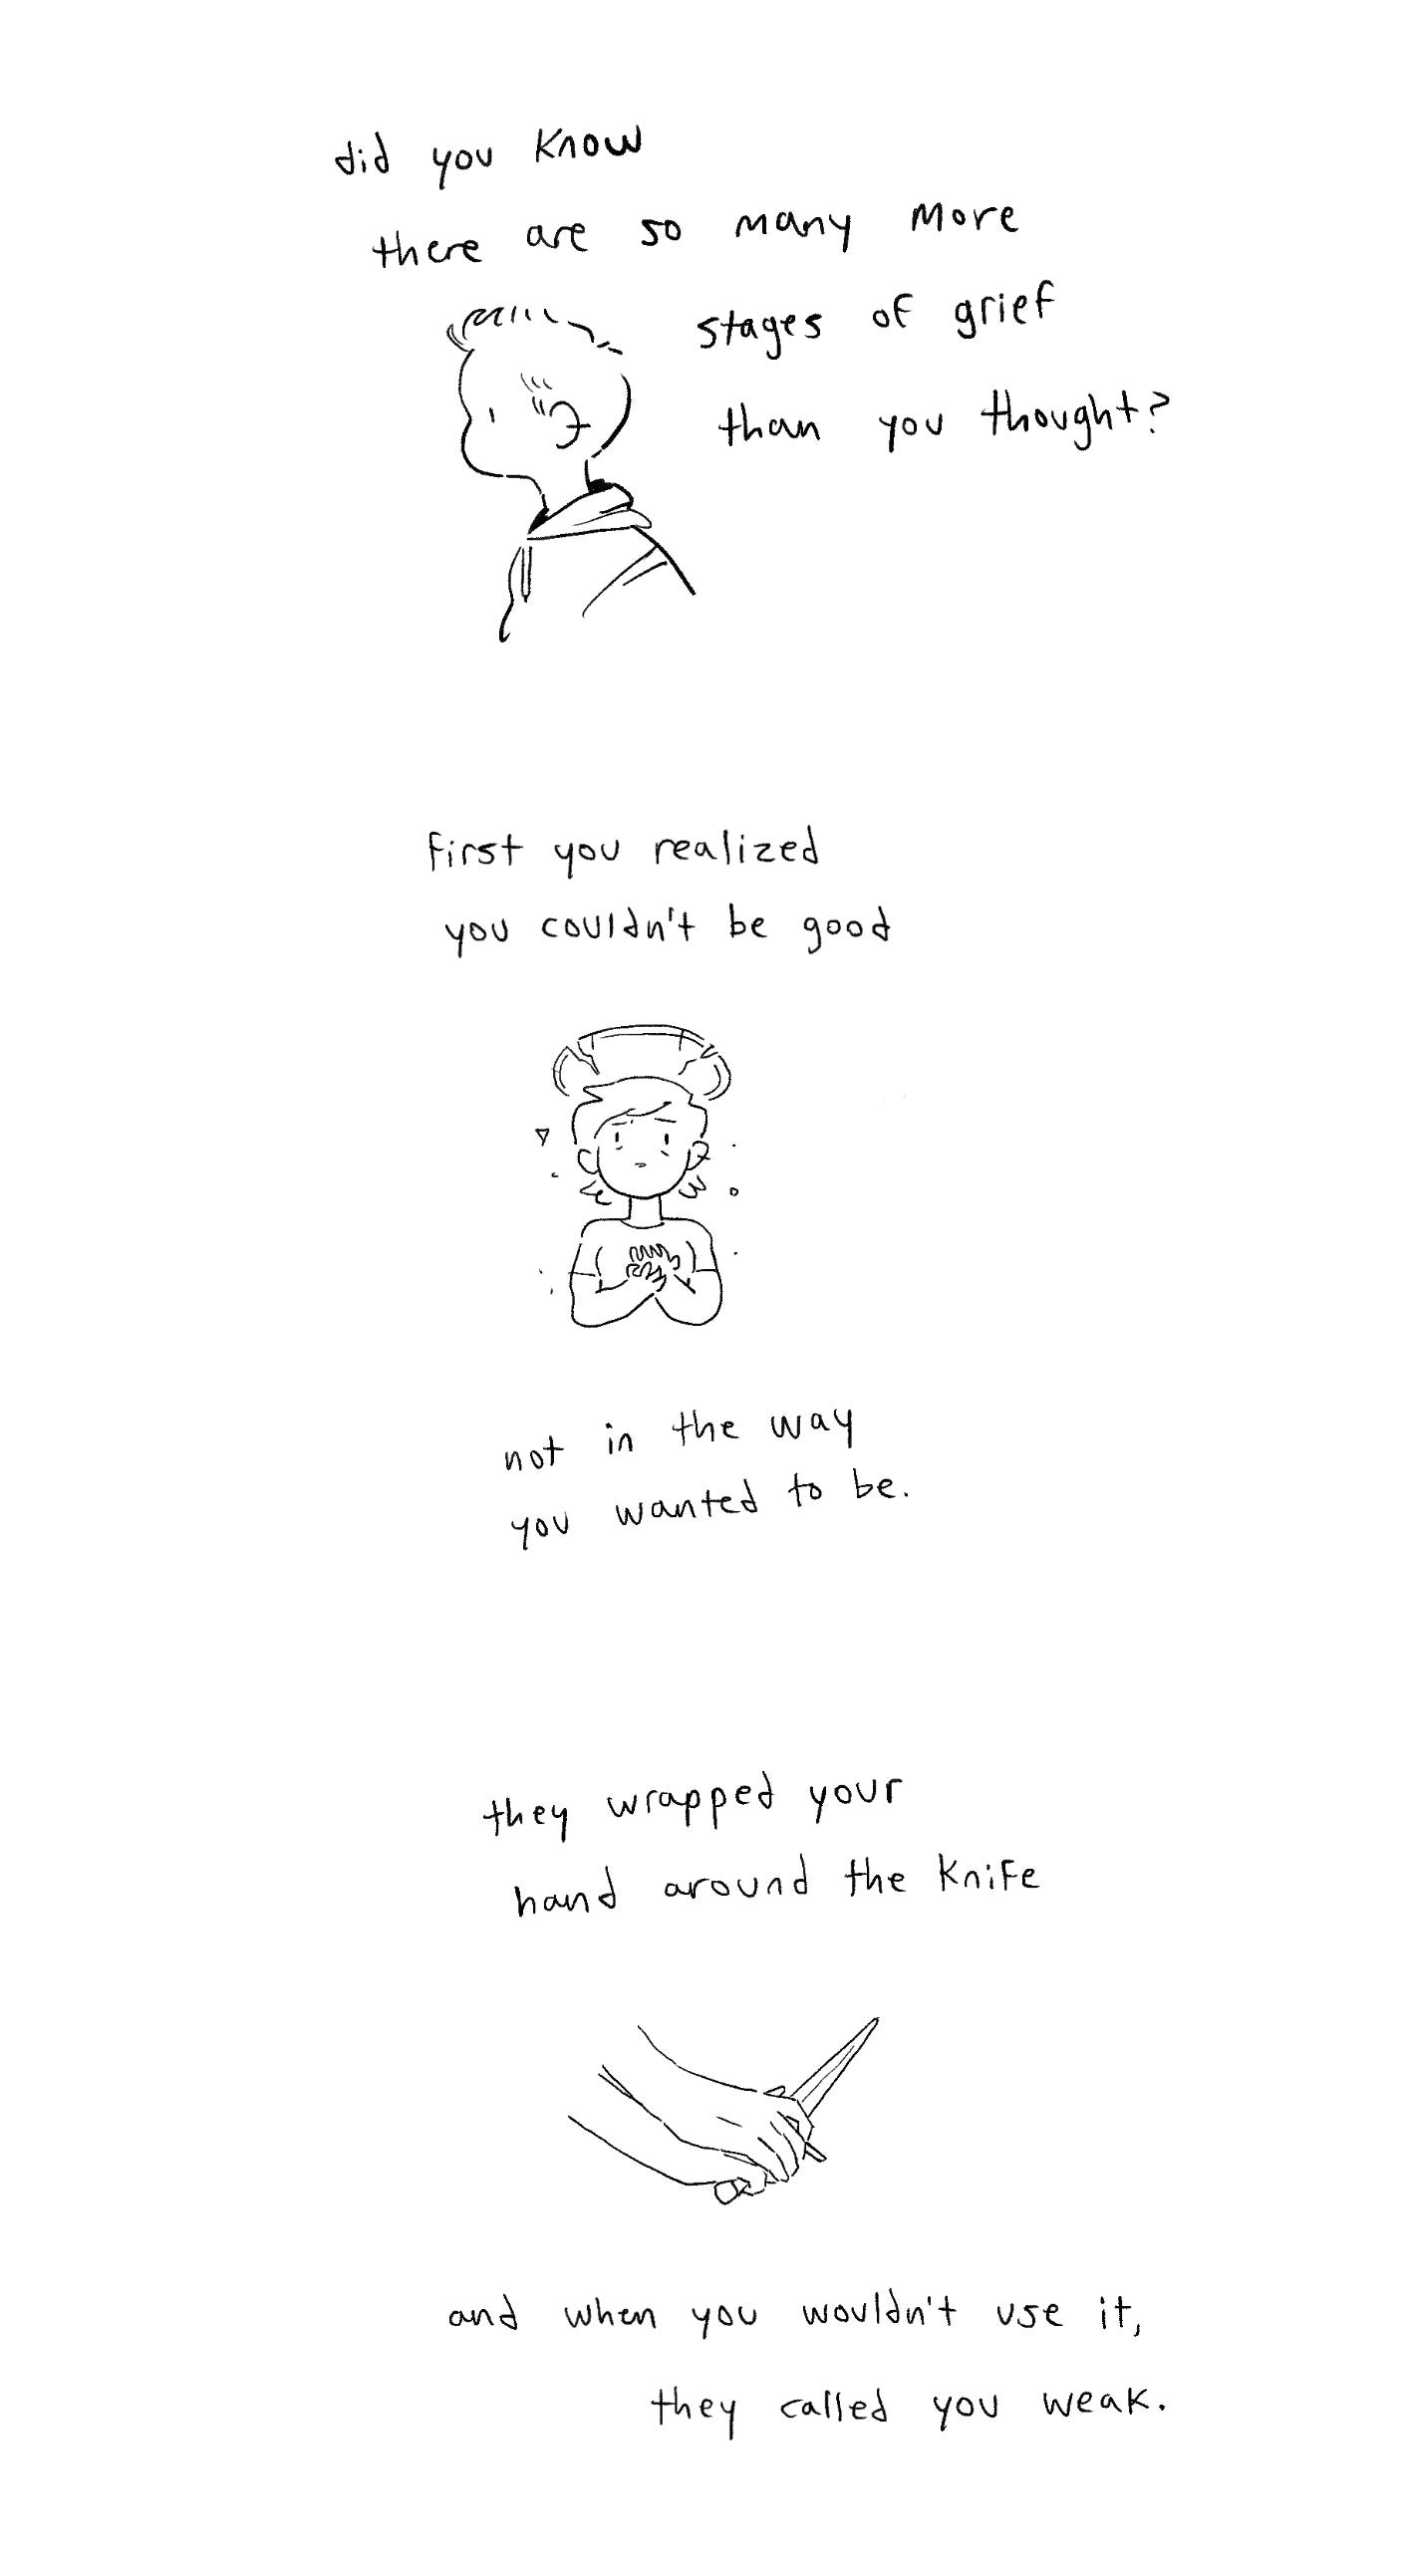 did you know
there are so many more
stages of grief
than you thought?
first you realized
you couldn't be good
not in the way
you wanted to be.
they wrapped your
hand around the knife
and when you wouldn't use it,
they called you weak.